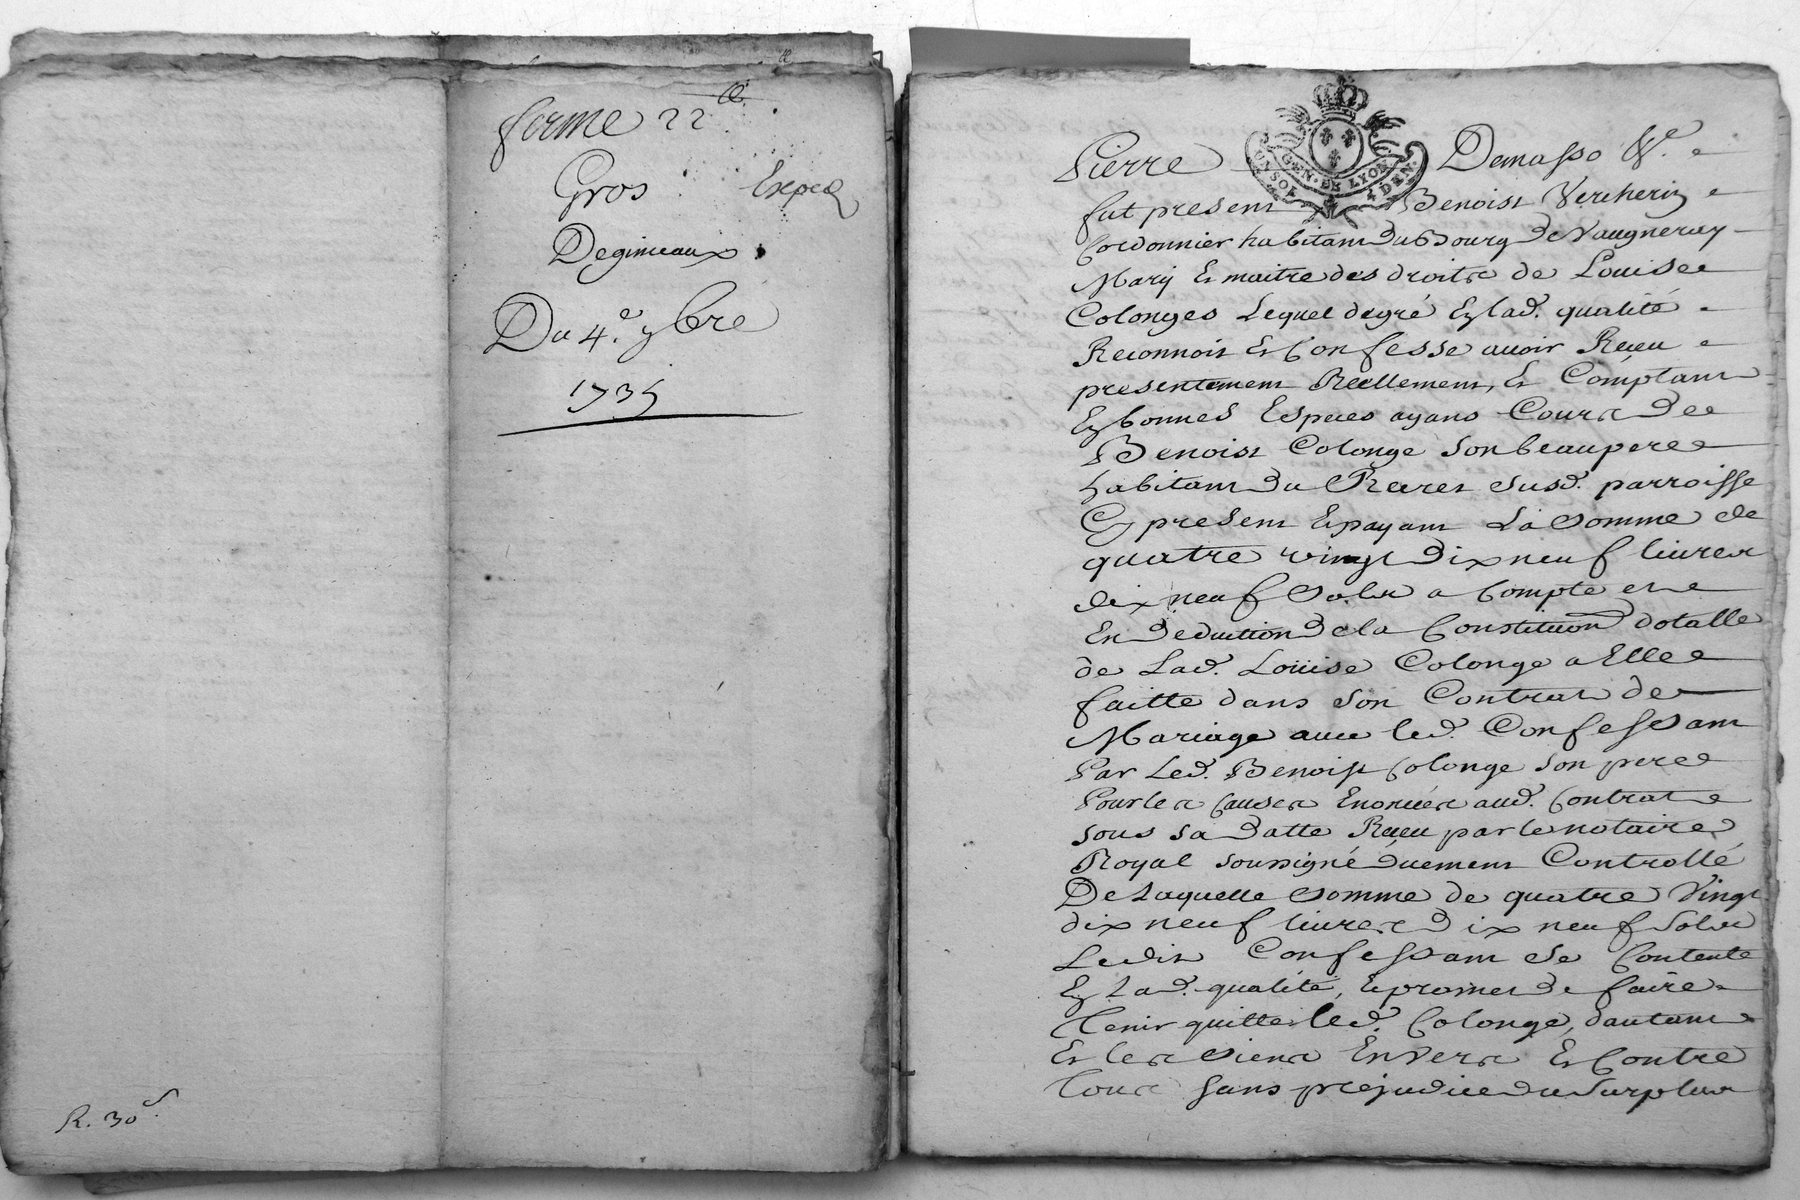 ferme 22
Gros Exped
Degimeaux
Du 4.e 9bre
1735
R. 30 s.
GEN. DE LYON
UN SOL 4 DEN.
Pierre Demasso &c.
fut present Benoist Vercherin
Cordonnier habitant du Bourg de Vaugneray
Mary Et maitre des droits de Louise
Colonges Lequel degré En lad. qualité
Reconnoit Et Confesse avoir Receu
presentement Reellement, Et Comptant
En bonnes Especes ayans Cours de
Benoist Colonge Son beaupere
habitant du Recret susd. parroisse
Cy present Et payant La somme de
quatre vingt dix neuf livres
dix neuf sols a Compte et
En deduction de la Constitution dotalle
de Lad. Loüise Colonge a Elle
faitte dans son Contrat de
Mariage avec led. Confessant
Par Led. Benoist Colonge son pere
Pour les Causes Enoncées aud. Contrat
sous sa datte Receu par le notaire
Royal soussigné duement Controllé
De Laquelle somme de quatre Vingt
dix neuf livres dix neuf sols
Ledit Confessant se Contente
En Lad. qualité, Et promet de faire
Tenir quitte led. Colonge, dautant
Et les siens Envers Et Contre
Tous sans prejudice du Surplus